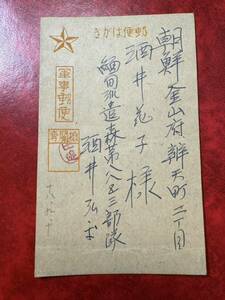 郵便はがき
軍事郵便
検閲済
朝鮮釜山府辨天町二丁目
酒井花子様
緬甸派遣森第八五三部隊
酒井